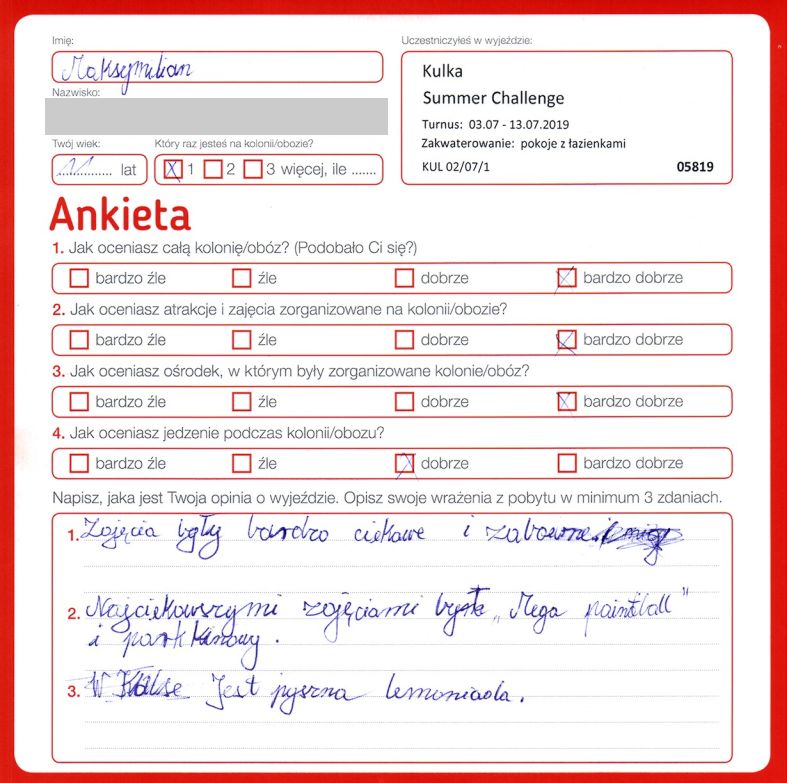 Imię:
Maksymilian
Nazwisko:
Uczestniczyłeś w wyjeździe:
Kulka
Summer Challenge
Turnus: 03.07 - 13.07.2019
Zakwaterowanie: pokoje z łazienkami
KUL 02/07/1 05819
Twój wiek:
11 lat
Który raz jesteś na kolonii/obozie?
1 2 3 więcej, ile .......
Ankieta
1. Jak oceniasz całą kolonię/obóz? (Podobało Ci się?)
bardzo źle źle dobrze bardzo dobrze
2. Jak oceniasz atrakcje i zajęcia zorganizowane na kolonii/obozie?
bardzo źle źle dobrze bardzo dobrze
3. Jak oceniasz ośrodek, w którym były zorganizowane kolonie/obóz?
bardzo źle źle dobrze bardzo dobrze
4. Jak oceniasz jedzenie podczas kolonii/obozu?
bardzo źle źle dobrze bardzo dobrze
Napisz, jaka jest Twoja opinia o wyjeździe. Opisz swoje wrażenia z pobytu w minimum 3 zdaniach.
1. Zajęcia były bardzo ciekawe i zabawne.
2. Najciekawszymi zajęciami były „Mega paintball"
i park linowy.
3. W Kulce Jest pyszna lemoniada.